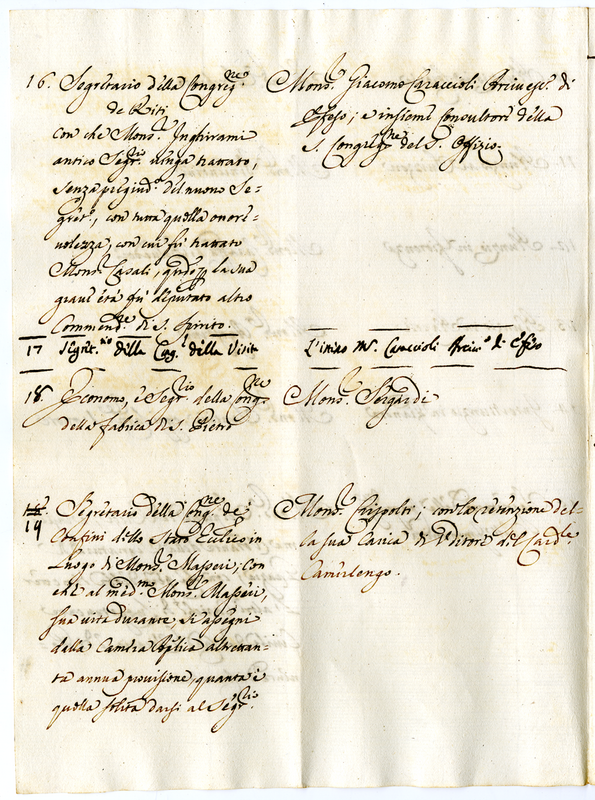 16. Segretario della Congreg.ne
de Riti
con che Mons.r Inghirami
antico Seg.rio venga trattato,
senza pregiud.o del nuovo Se=
gret.o, con tutta quella onore=
volezza, con cui fù trattato
Mons.r Casali, la sua
grave età fu deputato altro
Commend.re di S. Spirito.
Mons.r Giacomo Caraccioli Arcivesc.o di
Efeso; e insieme Consultore della
S. Congreg.ne del S. Offizio.
17 Segret.rio della Cong.e della Visita
L'istesso M.r Caraccioli Arciv.o di Efeso
18. Economo, e Segr.rio della Cong.ne
della fabrica di S. Pietro
Mons.r Sergardi
19 Segretario della Cong.ne de'
Confini dello Stato Eccl.ico in
luogo di Mons.r Masseri; con
che al med.mo Mons.r Masseri,
sua vita durante si assegni
dalla Camera Aplica altrettan=
ta annua provisione, quanta è
quella solita darsi al Segr.rio
Mons.r Rispoli; con la retenzione del=
la sua Carica di Uditore del Card.le
Camerlengo.